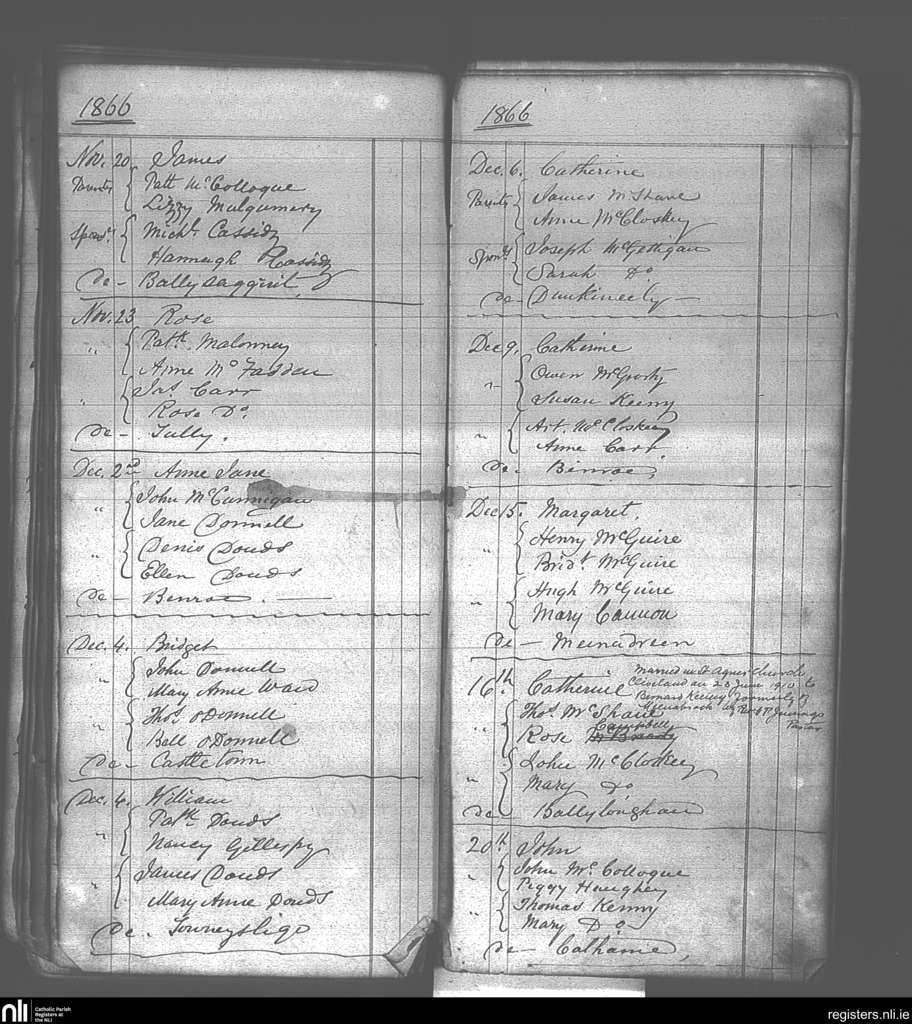 1866
Nov. 20 James
Parents Patt McCollogue
Lizzy Mulgumery
Spons. Michl. Cassidy
Hannagh Cassidy
de - Ballysaggirt
Nov. 23 Rose
" Patk. Malonney
Anne McFadden
" Jas. Carr
Rose Do.
de - Tully.
Dec. 2nd Anne Jane
" John McCunnigan
Jane Donnell
" Denis Douds
Ellen Douds
de - Benroe.
Dec. 4. Bridget
" John Donnell
Mary Anne Ward
" Thos. O'Donnell
Bell O'Donnell
de - Castletown
Dec. 4. William
" Patk Douds
Nancy Gillespy
" James Douds
Mary Anne Douds
de - Towneysligo
1866
Dec. 6. Catherine
Parents James McShane
Anne McCloskey
Spons. Joseph McGettigan
Sarah Do
de - Dunkineely -
Dec 9. Catherine
" Owen McGroty
Susan Keeny
" Art. McCloskey
Anne Carr.
de - Benroe,
Dec 15. Margaret.
" Henry McGuire
Bridt. McGuire
" Hugh McGuire
Mary Cannon
de - Meenadreen
16th. Catherine Married in St Agnes Church
Cleveland on 23 June 1910 to
Bernard Keeney formerly of
by Revd Jennings
Pastor
" Thos. McShane
Campbell
Rose
" John McCloskey
Mary Do
de Ballyloughan
20th John
" John McCollogue
Peggy Haughey
" Thomas Kenny
Mary Do
de - Calhame,
nli
Catholic Parish
Registers at
the NLI
registers.nli.ie